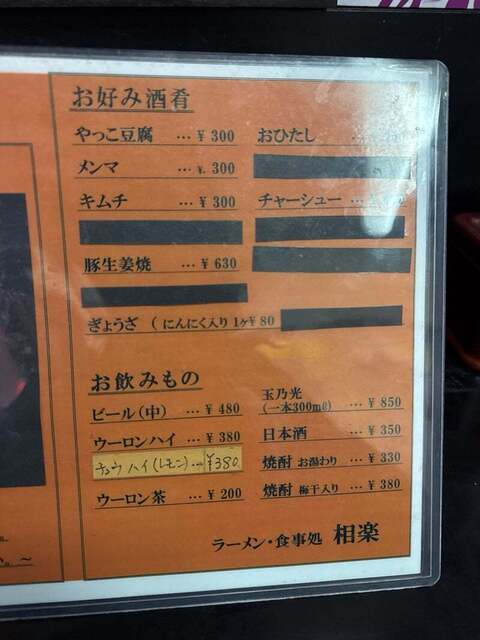 お好み酒肴
やっこ豆腐 …￥300
メンマ …￥.300
キムチ …￥300
豚生姜焼 …￥630
ぎょうざ (にんにく入り 1ヶ￥80
おひたし …
チャーシュー …
お飲みもの
ビール(中) …￥480
ウーロンハイ …￥380
チュウハイ(レモン)…￥380
ウーロン茶 …￥200
玉乃光
(一本300mℓ) …￥850
日本酒 …￥350
焼酎 お湯わり …￥330
焼酎 梅干入り …￥380
ラーメン・食事処 相楽